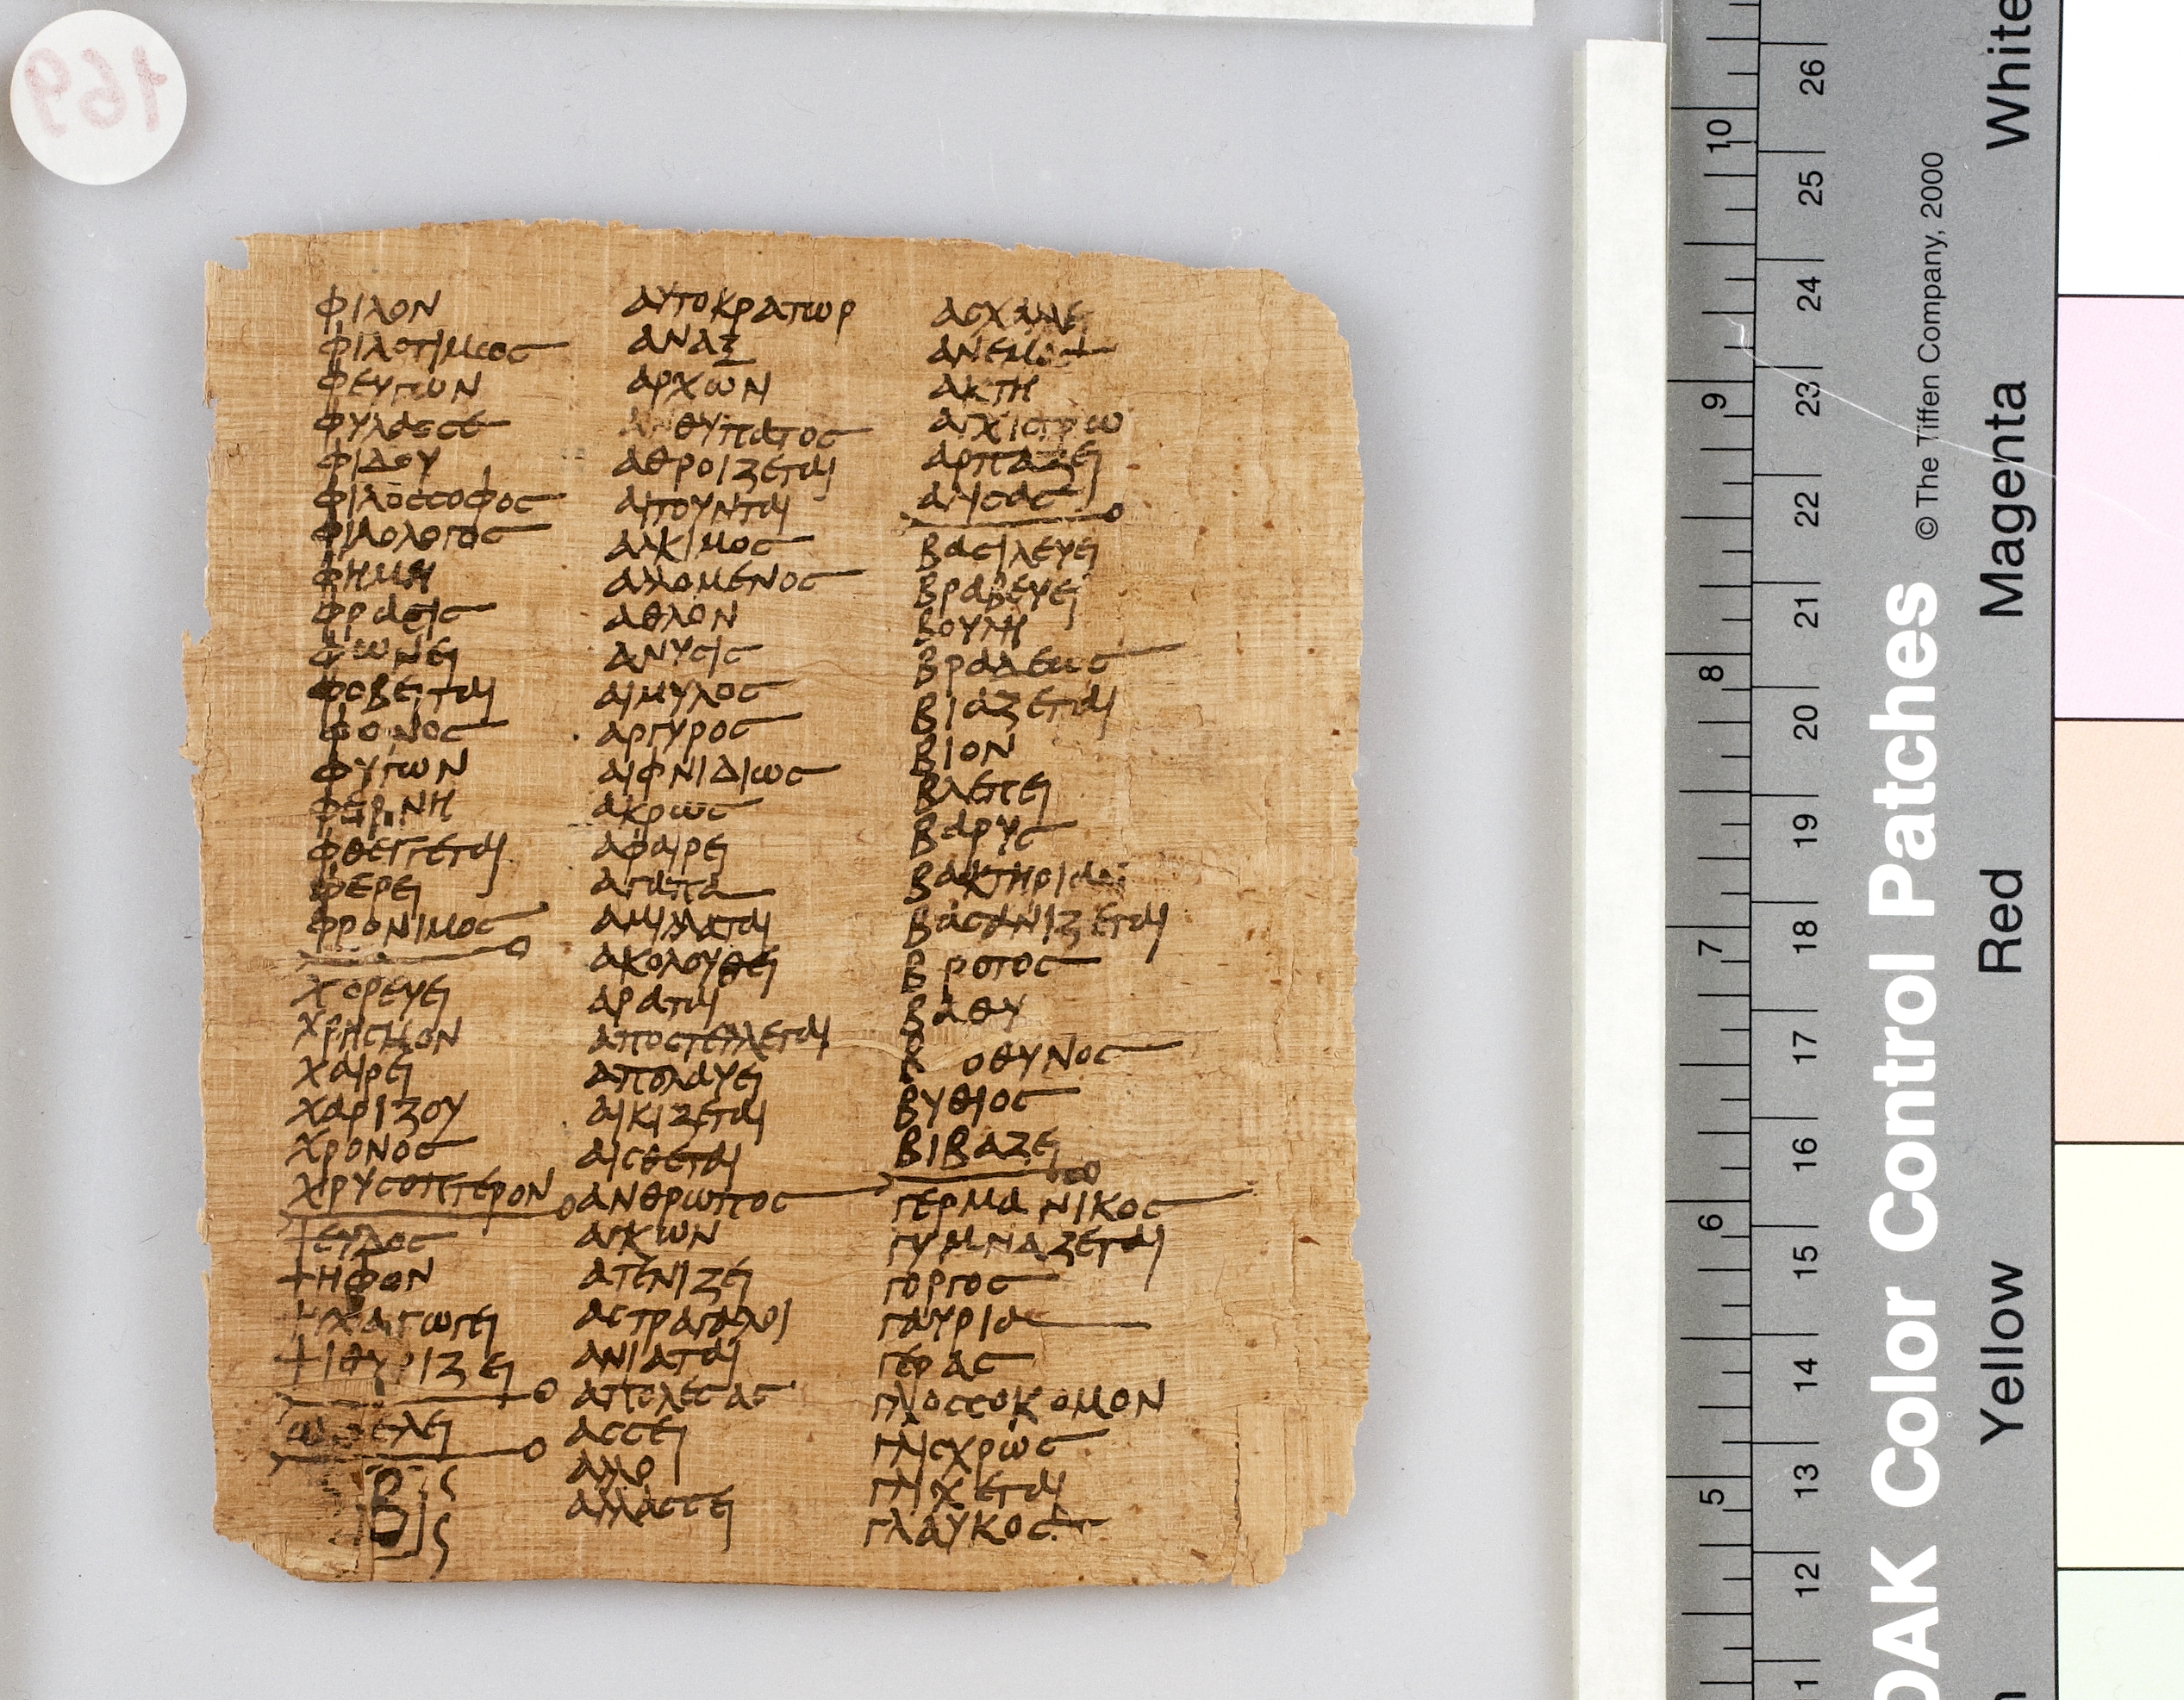 φιλον
φιλοτιμωσ
φευγων
φυλασσε
φιδου
φιλοσσοφος
φιλολογος
φημη
φρασις
φωνει
φοβειται
φονος
φυγων
φερνη
φθεγγεται
φερει
φρονιμος
χορευει
χρησμον
χαιρει
χαριζου
χρονος
χρυσοπτερον
ψευδος
ψηφον
ψιθυριζει
Β
αυτοκρατωρ
αναξ
αρχων
ανθυπατος
αθροιζεται
αιτουνται
αλκιμος
αλλομενος
αθλον
ανυσις
αιμυλος
αργυρος
αιφνιδιως
ακρως
αφαιρει
αγαπα
αμιλλαται
ακολουθει
αραται
αποστελλεται
απολαυει
αικιζεται
αισθεται
ανθρωπος
αγκων
ατενιζει
αστραγαλοι
ανιαται
απολεσας
ασσει
αλλο
αλλασσει
ασχαλει
ανεμος
ακτη
αγχιστρω
αρπαζει
αλισας
βασιλευει
βραβευει
βουλη
βραδεως
βιαζεται
βιον
βλεπει
βαρυς
βακτηρια
βασανιζεται
βροτος
βαθυ
β οθυνος
βυθιος
βιβαζει
γερμανικος
γυμναζεται
γοργος
γαυρια
γερας
γλοσσοκομον
γλισχρως
γλιχεται
γλαυκος
169
26
10
25
24
9
23
22
21
8
20
19
7
18
17
16
6
15
14
5
13
12
© The Tiffen Company, 2000
DAK Color Control Patches
White
Magenta
Red
Yellow